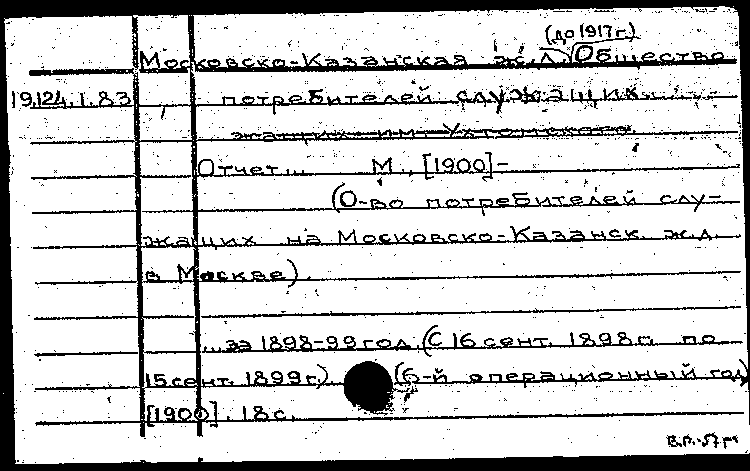 (до 1917 г.)
Московско-Казанская ж.д. Общество
19.124.1.83 потребителей служащих
жащих им. Ухтомского.
Отчет... М., [1900]-
(О-во потребителей слу-
жащих на Московско-Казанск. ж.д.
в Москве).
...за 1898-99 год. (С 16 сент. 1898 г. по
15 сент. 1899 г.) (6-й операционный год)
[1900]. 18 с.